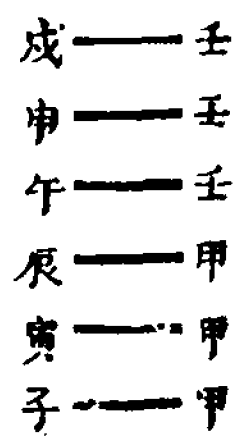 戌 壬
申 壬
午 壬
辰 甲
寅 甲
子 甲